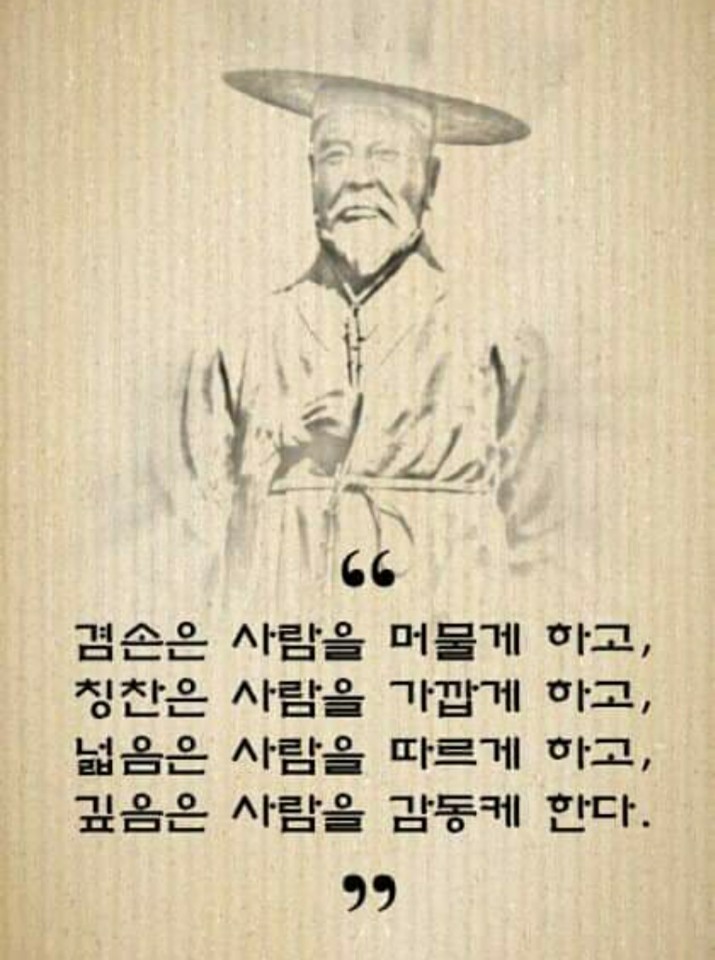 “
겸손은 사람을 머물게 하고,
칭찬은 사람을 가깝게 하고,
넓음은 사람을 따르게 하고,
깊음은 사람을 감동케 한다.
”